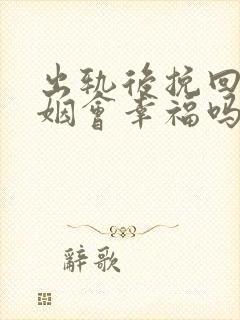 出轨後挽回
姻會幸福吗
辭歌